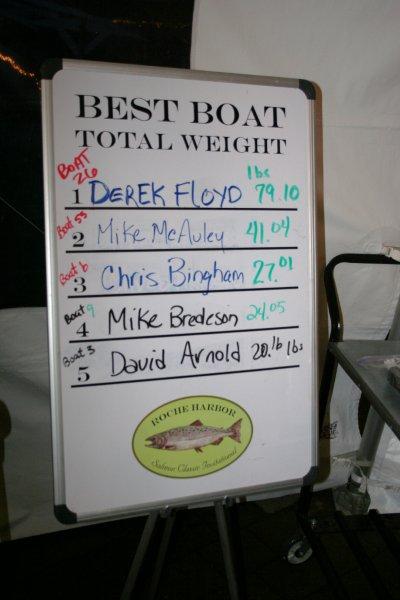 BEST BOAT
TOTAL WEIGHT
lbs
BOAT 26 1 DEREK FLOYD 79.10
Boat 55 2 Mike McAuley 41.04
Boat 6 3 Chris Bingham 27.01
Boat 9 4 Mike Bredeson 24.05
Boat 3 5 David Arnold 20.16 lbs
ROCHE HARBOR
Salmon Classic Invitational